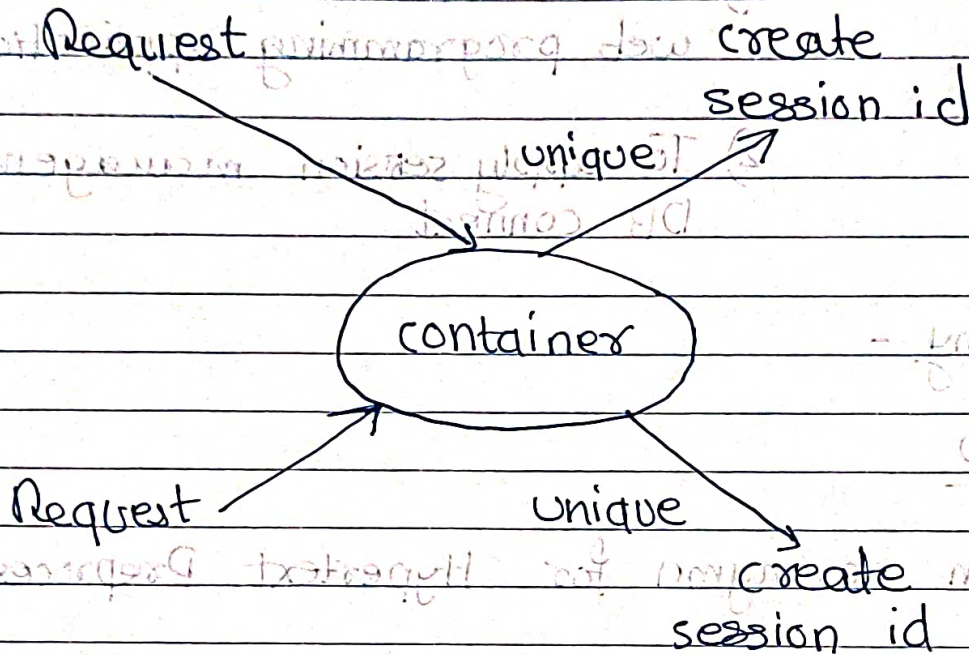 Request
create
session id
unique
container
Request
unique
create
session id